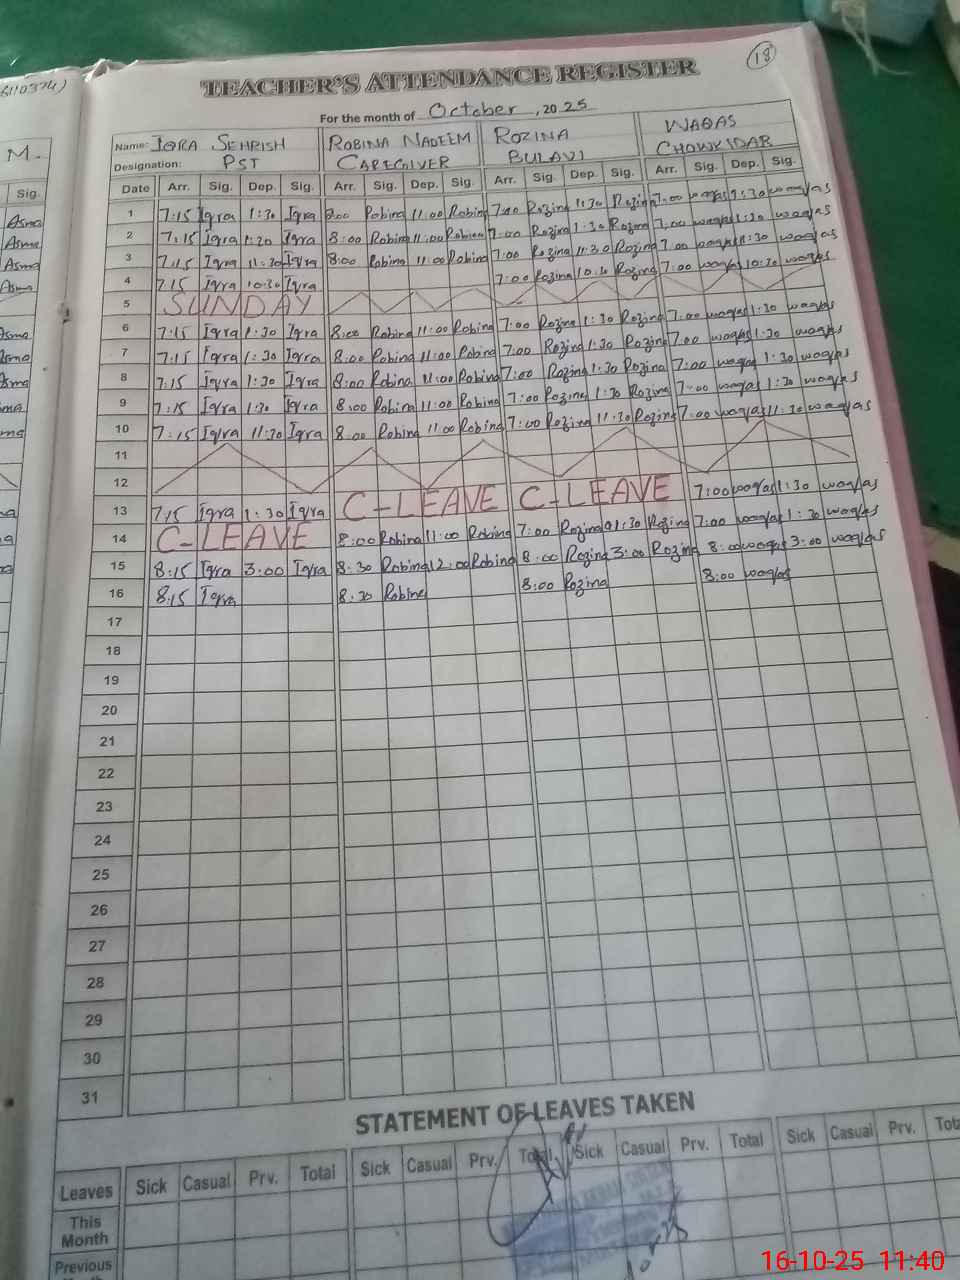 TEACHER'S ATTENDANCE REGISTER
18
For the month of October, 2025
Name: IQRA SEHRISH ROBINA NADEEM ROZINA WAQAS
Designation: PST CAREGIVER BULAVI CHOWKIDAR
Date Arr. Sig. Dep. Sig. Arr. Sig. Dep. Sig. Arr. Sig. Dep. Sig. Arr. Sig. Dep. Sig.
1 7:15 Iqra 1:30 Iqra 8:00 Robina 11:00 Robina 7:00 Rozina 1:30 Rozina 7:00 waqas 1:30 waqas
2 7:15 Iqra 1:30 Iqra 8:00 Robina 11:00 Robina 7:00 Rozina 1:30 Rozina 7:00 waqas 1:30 waqas
3 7:15 Iqra 11:30 Iqra 8:00 Robina 11:00 Robina 7:00 Rozina 11:30 Rozina 7:00 waqas 11:30 waqas
4 7:15 Iqra 10:30 Iqra 7:00 Rozina 10:30 Rozina 7:00 waqas 10:30 waqas
5 SUNDAY
6 7:15 Iqra 1:30 Iqra 8:00 Robina 11:00 Robina 7:00 Rozina 1:30 Rozina 7:00 waqas 1:30 waqas
7 7:15 Iqra 1:30 Iqra 8:00 Robina 11:00 Robina 7:00 Rozina 1:30 Rozina 7:00 waqas 1:30 waqas
8 7:15 Iqra 1:30 Iqra 8:00 Robina 11:00 Robina 7:00 Rozina 1:30 Rozina 7:00 waqas 1:30 waqas
9 7:15 Iqra 1:30 Iqra 8:00 Robina 11:00 Robina 7:00 Rozina 1:30 Rozina 7:00 waqas 1:30 waqas
10 7:15 Iqra 11:30 Iqra 8:00 Robina 11:00 Robina 7:00 Rozina 11:30 Rozina 7:00 waqas 11:30 waqas
11
12
13 7:15 Iqra 1:30 Iqra C-LEAVE C-LEAVE 7:00 waqas 1:30 waqas
14 C-LEAVE 8:00 Robina 11:00 Robina 7:00 Rozina 1:30 Rozina 7:00 waqas 1:30 waqas
15 8:15 Iqra 3:00 Iqra 8:30 Robina 12:00 Robina 8:00 Rozina 3:00 Rozina 8:00 waqas 3:00 waqas
16 8:15 Iqra 8:30 Robina 8:00 Rozina 8:00 waqas
17
18
19
20
21
22
23
24
25
26
27
28
29
30
31
STATEMENT OF LEAVES TAKEN
Leaves Sick Casual Prv. Total Sick Casual Prv. Total Sick Casual Prv. Total Sick Casual Prv.
This Month
Previous
16-10-25 11:40
M.
Sig.
Asma
Asma
Asma
Asma